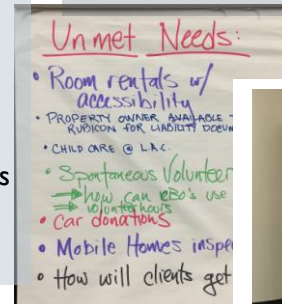 Unmet Needs:
• Room rentals w/
accessibility
• PROPERTY OWNER AVAILABLE -
RUBICON FOR LIABILITY DOCUM
• CHILD CARE @ L.A.C.
• Spontaneous Volunteer
→ how can CBO's use
→ volunteer hours
• Car donations
• Mobile Homes inspe
• How will clients get
s